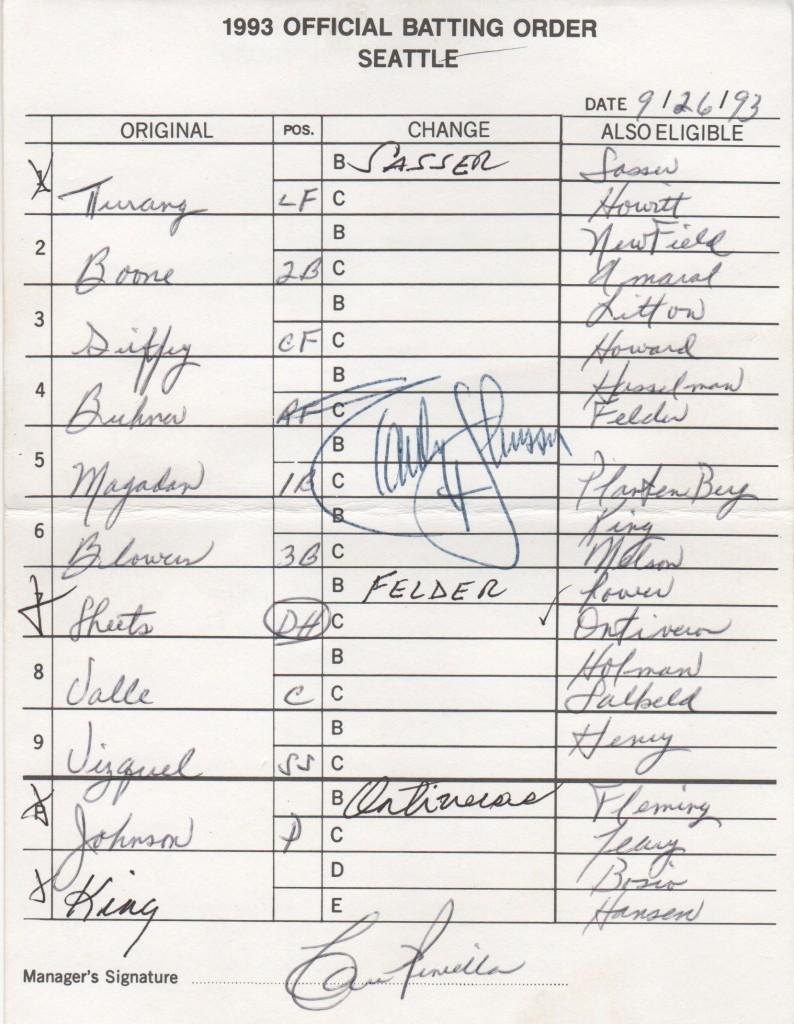 1993 OFFICIAL BATTING ORDER
SEATTLE
DATE 9/26/93
ORIGINAL POS. CHANGE ALSO ELIGIBLE
1 B SASSER Sasser
Turang LF C Howitt
2 B Newfield
Boone 2B C Amaral
3 B Litton
Griffey CF C Howard
4 B Hasselman
Buhner RF C Felder
5 B
Magadan 1B C PlantenBerg
6 B King
Blowers 3B C Nelson
7 B FELDER Power
Sheets DH C Ontiveros
8 B Holman
Valle C C Salkeld
9 B Henry
Vizquel SS C
B Ontiveros Fleming
Johnson P C Leary
D Bosio
King E Hansen
Randy Johnson
Manager's Signature Lou Piniella